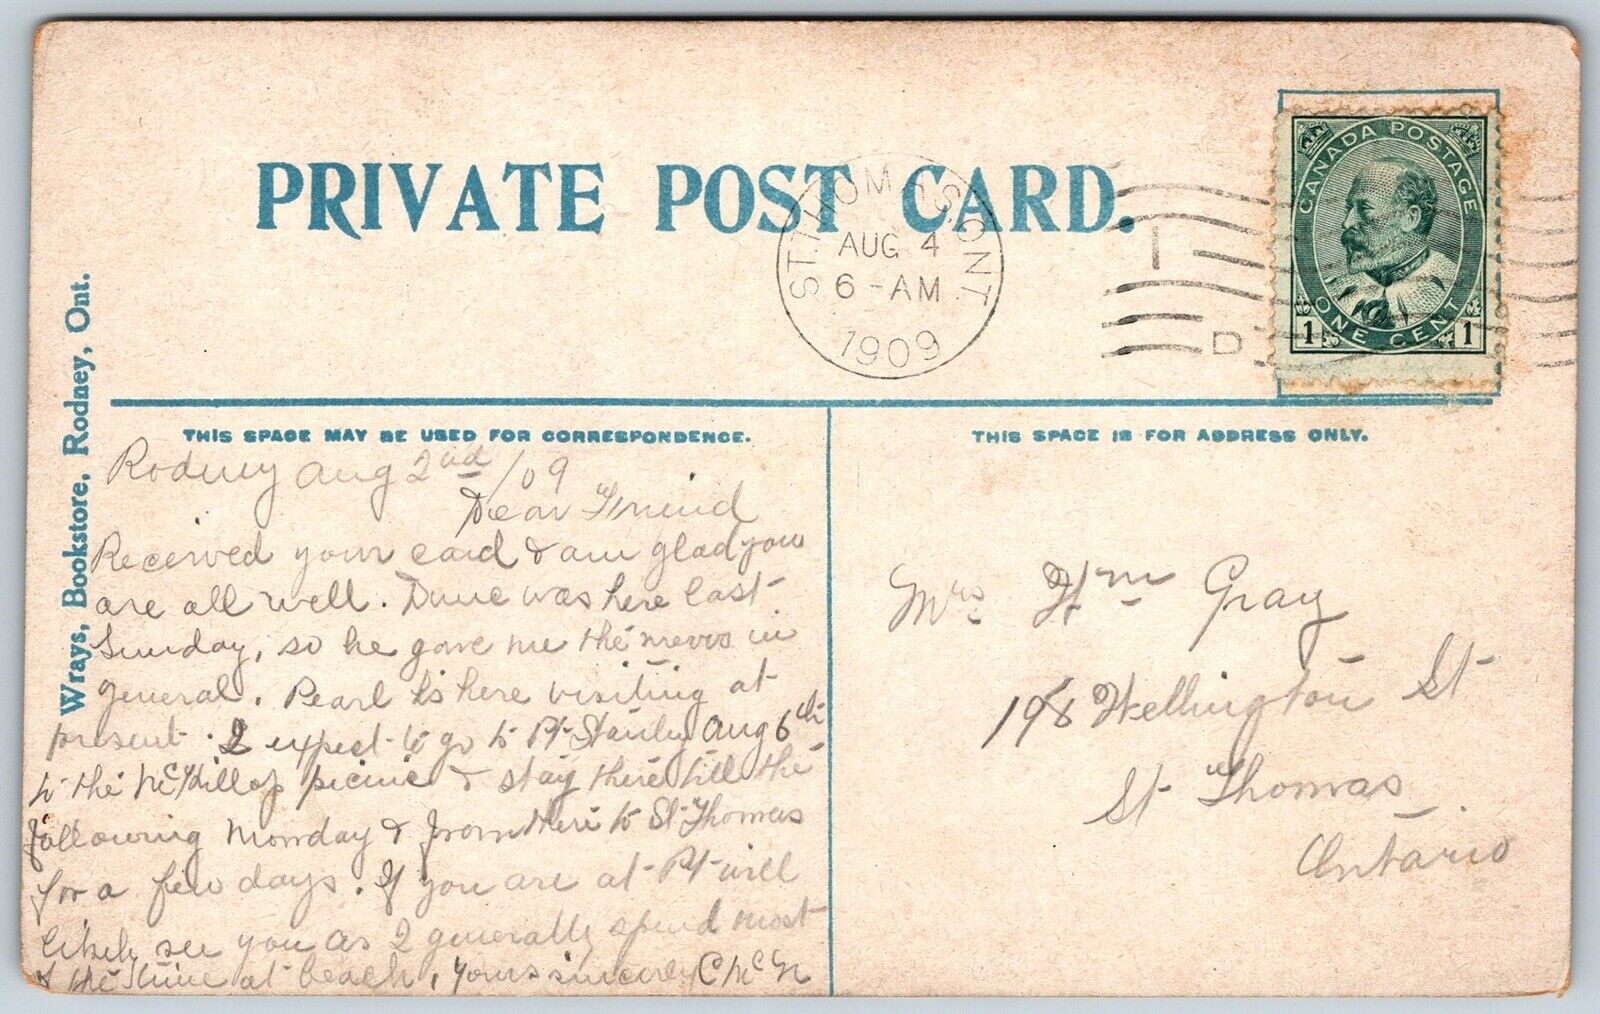 PRIVATE POST CARD.
ST. THOMAS ONT
AUG 4
6-AM
1909
D
CANADA POSTAGE
1 ONE CENT 1
Wrays, Bookstore, Rodney, Ont.
THIS SPACE MAY BE USED FOR CORRESPONDENCE.
Rodney Aug 2nd /09
Dear Friend
Received your card & am glad you
are all well. was here last
Sunday, so he gave me the news in
general. Pearl is here visiting at
present. I expect to go to Pt Stanley Aug 6th
to the McKillop picnic & stay there till the
following Monday & from there to St Thomas
for a few days. If you are at Pt will
likely see you as I generally spend most
of the time at beach, Yours sincerely C McN
THIS SPACE IS FOR ADDRESS ONLY.
Mrs Wm Gray
198 Wellington St
St Thomas
Ontario